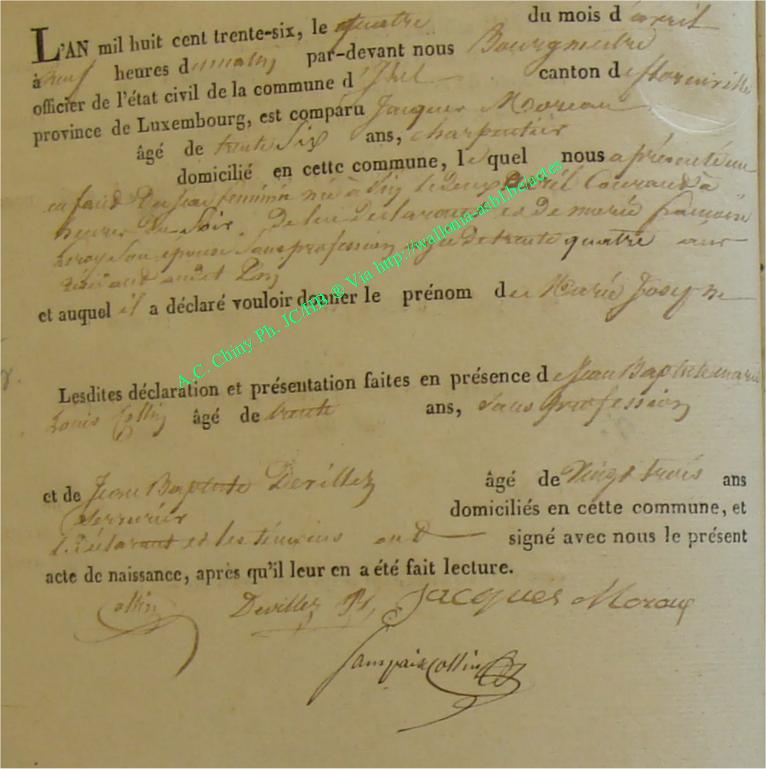 L'AN mil huit cent trente-six, le quatre du mois d'avril
à neuf heures du matin par-devant nous Bourgmestre
officier de l'état civil de la commune d'Izel canton de florenville
province de Luxembourg, est comparu Jacques Moreau
âgé de trente Six ans, charpentier
domicilié en cette commune, le quel nous a présenté un
enfant du sexe féminin né à Izel le deux avril Courant à
heures du Soir, De lui Déclarant et De marie françoise
son épouse Sans profession agée de trente quatre ans

et auquel il a déclaré vouloir donner le prénom de Marie Josephe
Lesdites déclaration et présentation faites en présence de Jean Baptiste marie
Louis Collin âgé de trente ans, Sans profession
et de Jean Baptiste Devillez âgé de Vingt trois ans
Serrurier domiciliés en cette commune, et
le Déclarant et les témoins ont signé avec nous le présent
acte de naissance, après qu'il leur en a été fait lecture.
Collin Devillez Jacques Moraux
Collin
A.C. Chiny Ph. JC/HB ® Via http://wallonia-asbl.be/actes